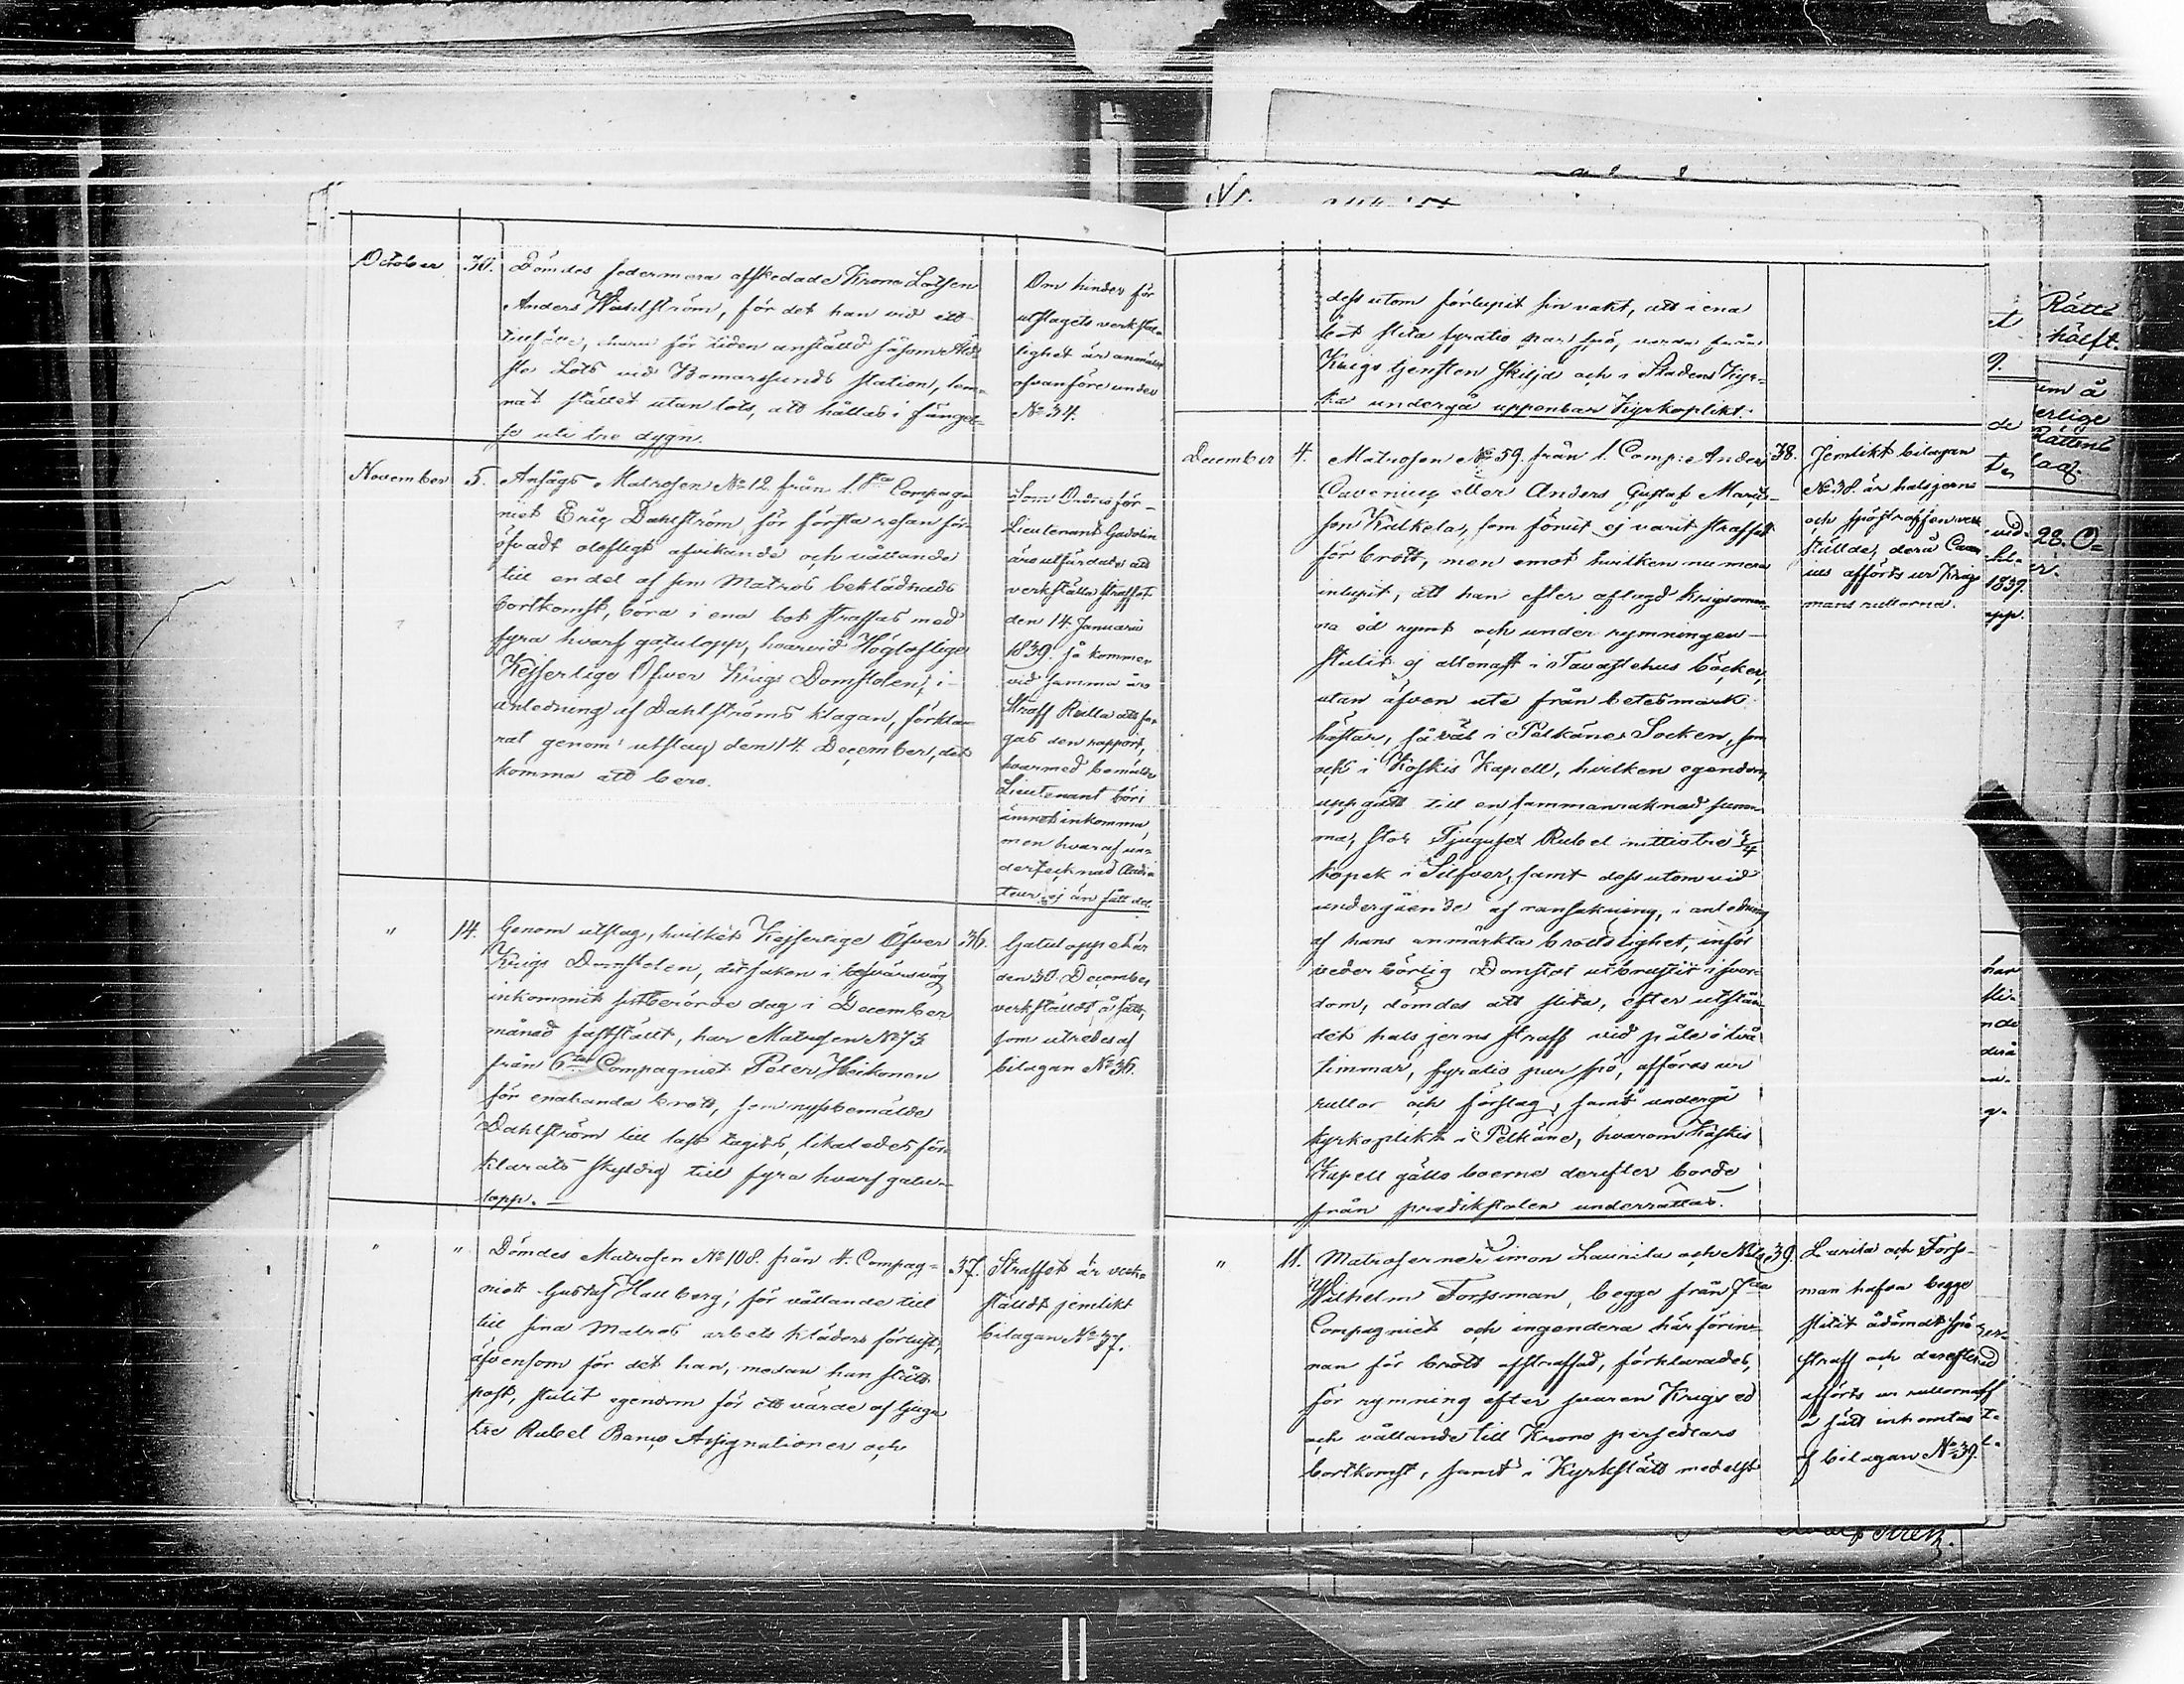 October 30. Dömdes sedermera afskedade Krono Lotsen
Anders Wahlström, för det han vid ett
tillfälle, under för tiden anställd såsom
ste Lots vid Bomarsunds station, lem-
nat stället utan lots, att hållas i fängel-
se uti tre dygn.
Om hinder för
utslagets verkstäl-
lighet är anmäldt
ofvanföre under
No 34.
November 5. Ansågs Matrosen No 12 från 1.sta Compag-
niet Eriq Dahlström, för första resan för-
öfvadt olofligt afvikande och vållande
till en del af sin Matros beklädnads
bortkomst, böra i ena bot straffas med
fyra hvarf gatulopp, hvarvid Höglofliga
Kejserlige Öfver Krigs Domstolen, i
anledning af Dahlströms klagan, förkla-
rat genom utslag den 14 December, det
komma att bero.
Som Ordres för
Lieutenant Gadolin
äro utfärdade att
verkställa straffet
den 14. Januarii
1839. så kommer
vid samma års
Straff Rulla att fo-
gas den rapport,
hvarmed bemälde
Lieutenant bör i
ämnet inkomma,
men hvaraf un-
dertecknad Audi-
teur ej än fått del.
" 14. Genom utslag, hvilket Kejserlige Öfver
Krigs Domstolen, dit saken i besvärsväg
inkommit sistberörde dag i December
månad fastställt, har Matrosen No 73
från 6te Compagniet Peter Heikonen
för enahanda brott, som nyssbemälde
Dahlström till last lagits, likaledes för-
klarats skyldig till fyra hvarf gatu-
lopp. —
36. Gatuloppet är
den 30 December
verkställdt, å sätt,
som utredes af
bilagan No 36.
" " Dömdes Matrosen No 108. från 4. Compag-
niet Gustaf Hallberg, för vållande till
till sina Matros arbets kläders förlust,
äfvensom för det han, medan han stått
post, stulit egendom för ett värde af tjugu
tre Rubel Banco Assignationer och
37. Straffet är verk-
ställdt jemlikt
bilagan No 37.
dess utom förlupit sin vakt, att i ena
bot slita fyratio par spö, varda från
Krigs tjensten skiljd och i Stadens Kyr-
ka undergå uppenbar Kyrkoplikt.
December 4. Matrosen No 59. från 1. Comp: Anders
Cavenius eller Anders Gustaf
son Kulkela, som förut ej varit straffad
för brott, men emot hvilken nu mera
inlupit, att han efter aflagd Krigsman-
na ed rymt och under rymningen
stulit ej allenast i Tavastehus böcker,
utan äfven ute från betesmark
hästar, så väl i Pelkäne Socken, som
ock i Koskis Kapell, hvilken egendom
uppgått till en sammanräknad sum-
ma, stor Tjugusex Rubel nittiotre 3/4
kopek i Silfver, samt dess utom vid
undergående af ransakning, i anledning
af hans anmärkta brottslighet, inför
vederbörlig Domstol utbrustit i svor-
dom, dömdes att slita, efter utstån-
det halsjerns straff vid påle i två
timmar, fyratio par spö, afföras ur
rullor och förslag, samt undergå
kyrkoplikt i Pelkäne, hvarom Koskis
Kapell gälls boerne derefter borde
från predikstolen underrättas.
38. Jemlikt bilagan
No 38. är halsjerns
och spöstraffen verk-
stälde, derå Caven-
ius afförts ur Krigs-
mans rullorna.
" 11. Matroserne Simon Launila och Nils
Wilhelm Forssman, begge från 7de
Compagniet och ingendera härförin-
nan för brott afstraffad, förklarades,
för rymning efter svuren Krigs ed
och vållande till Krono persedlars
bortkomst, samt i Kyrkslätt medelst
39. Launila och Forss-
man hafva begge
slitit ådömdt spö
straff och derefter
afförts ur rullorna
å sätt inhemtas
af bilagan No 39.
Rätts
hälft.
um å
erlige
Rättens
lag.
28. O-
1839.